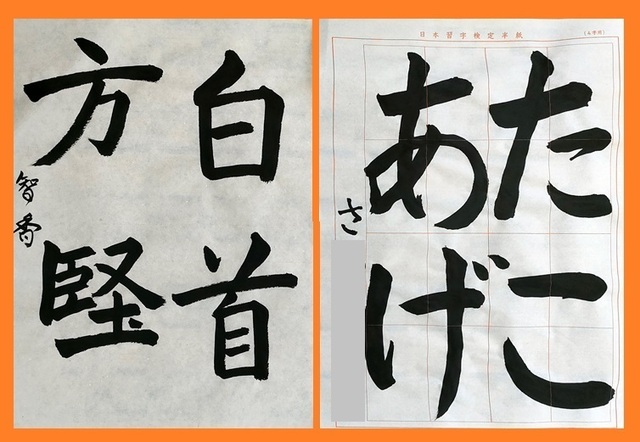 白首
方堅
智香
日本習字検定半紙
たこ
あげ
さ